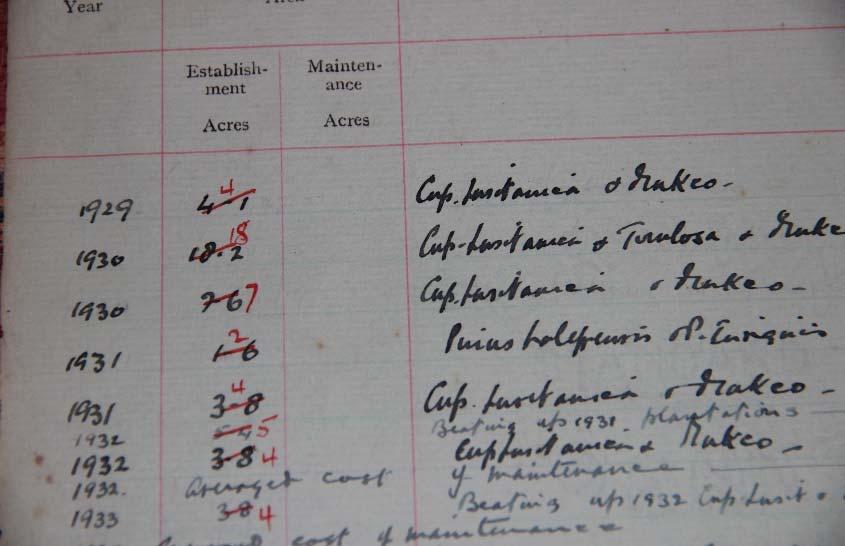 Year
Establish- Mainten-
ment ance
Acres Acres
1929 4-1 4 Cup. Lusitanica & Mukeo-
1930 18.2 18 Cup. Lusitanica & Torulosa &
1930 7-6 7 Cup. Lusitanica & Mukeo -
1931 1-6 2 Pinus halepensis & P. Insignis
1931 3-8 4 Cup. Lusitanica & Mukeo -
1932 5 Beating up 1931 plantations
1932 3-8 4 Cup Lusitanica & Mukeo -
1932. averaged cost of maintenance
1933 3-8 4 Beating up 1932 Cup Lusit &
cost of maintenance